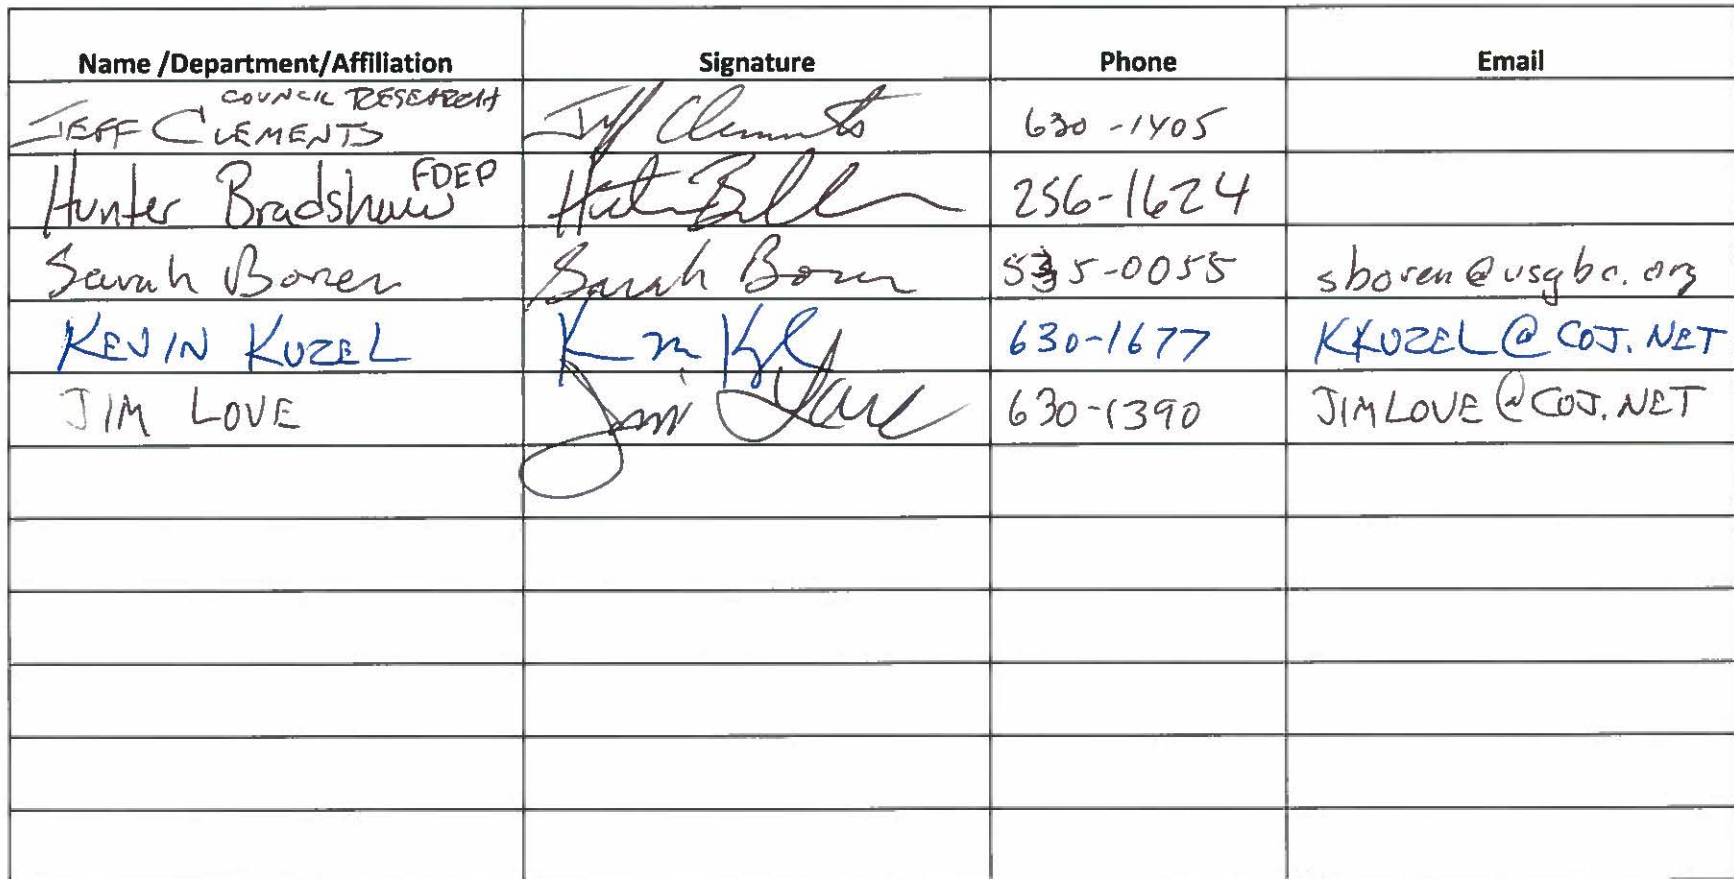 Name /Department/Affiliation Signature Phone Email
COUNCIL RESEARCH
JEFF CLEMENTS Jeff Clements 630-1405
Hunter Bradshaw FDEP 256-1624
Sarah Boren Sarah Boren 535-0055 sboren@usgbc.org
KEVIN KUZEL 630-1677 KKUZEL@COJ.NET
JIM LOVE Jim Love 630-1390 JIMLOVE@COJ.NET